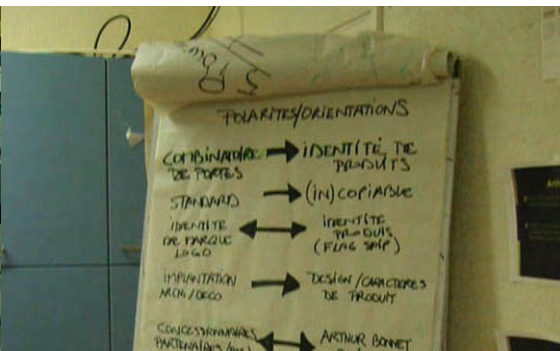 POLARITES/ORIENTATIONS
COMBINATOIRE DE PORTES → IDENTITÉ DE PRODUITS
STANDARD → (IN)COPIABLE
IDENTITE DE MARQUE LOGO ↔ IDENTITE PRODUIS (FLAG SHIP)
IMPLANTATION ARCHI/DECO → DESIGN/CARACTERES DE PRODUIT
CONCESSIONNAIRES PARTENAIRES ↔ ARTHUR BONNET